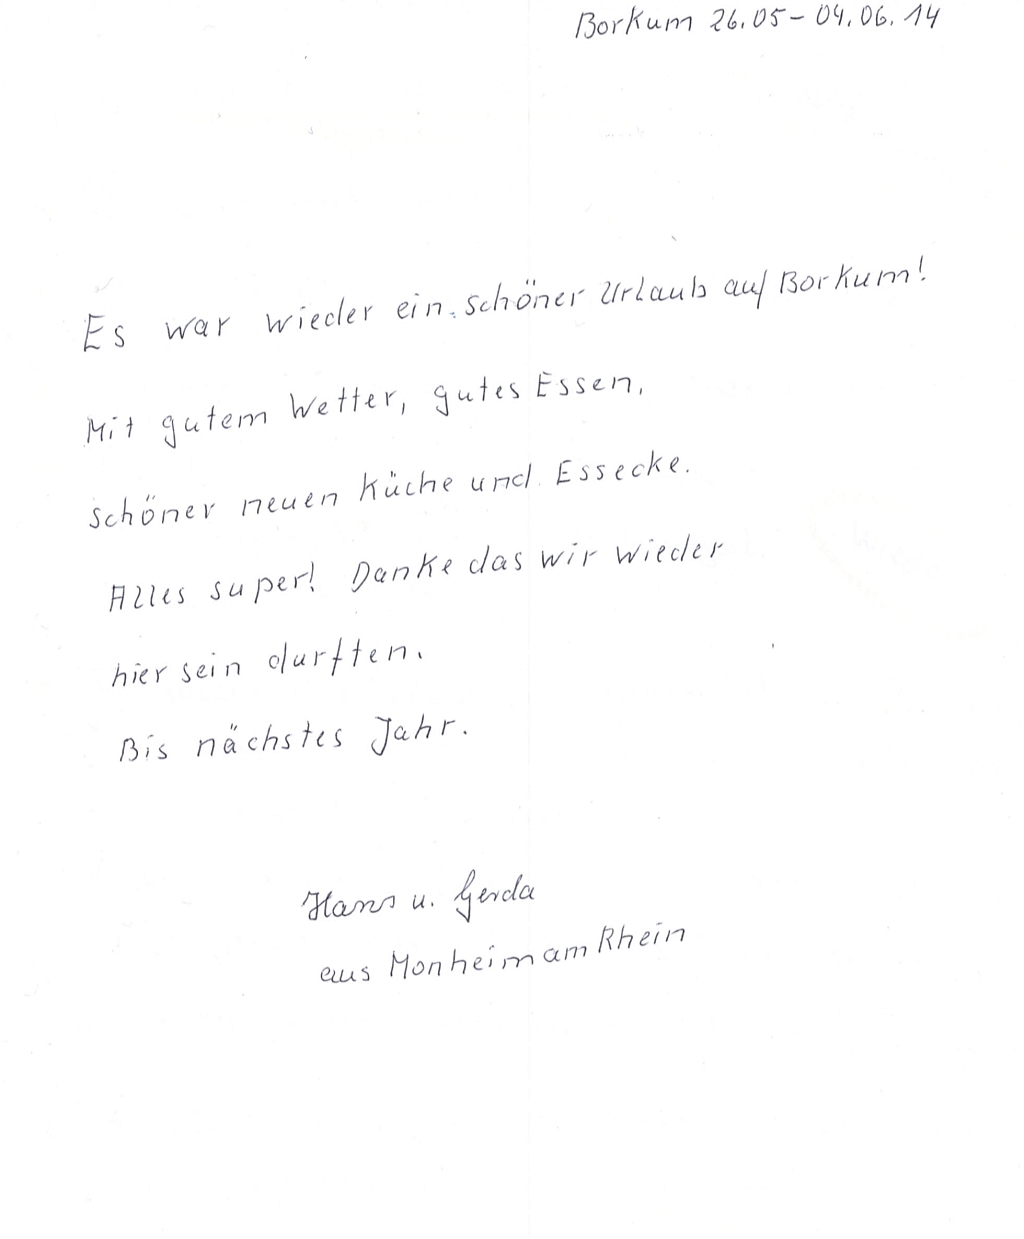 Borkum 26.05 - 04.06.14
Es war wieder ein schöner Urlaub auf Borkum!
Mit gutem Wetter, gutes Essen,
schöner neuen Küche und Essecke.
Alles super! Danke das wir wieder
hier sein durften.
Bis nächstes Jahr.
Hans u. Gerda
aus Monheim am Rhein